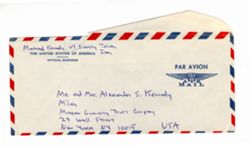 Michael Kennedy US Embassy Tehran
Iran
THE UNITED STATES OF AMERICA
OFFICIAL BUSINESS
PAR AVION
AIR
MAIL
Mr and Mrs Alexander S. Kennedy
Milos
Morgan Guaranty Trust Company
23 Wall Street
New York NY 10015
USA